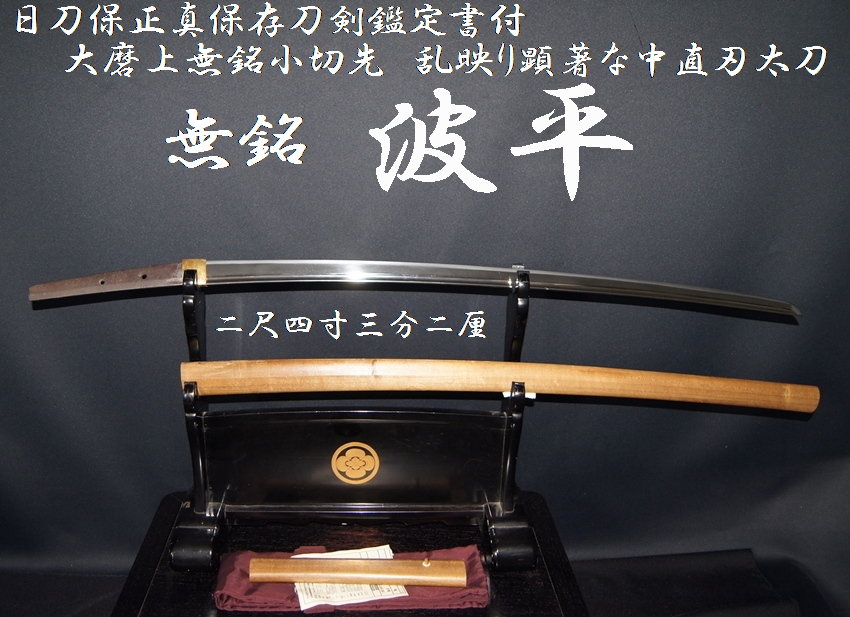 日刀保正真保存刀剣鑑定書付
大磨上無銘小切先 乱映り顕著な中直刃太刀
無銘 波平
二尺四寸三分二厘